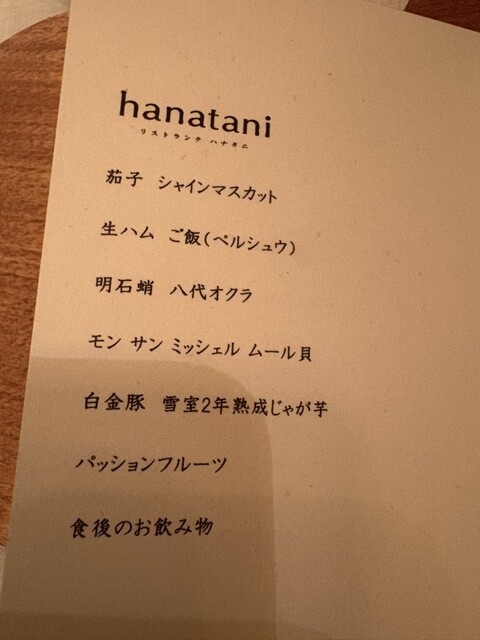 hanatani
リストランテ ハナタニ
茄子 シャインマスカット
生ハム ご飯(ペルシュウ)
明石蛸 八代オクラ
モン サン ミッシェル ムール貝
白金豚 雪室2年熟成じゃが芋
パッションフルーツ
食後のお飲み物